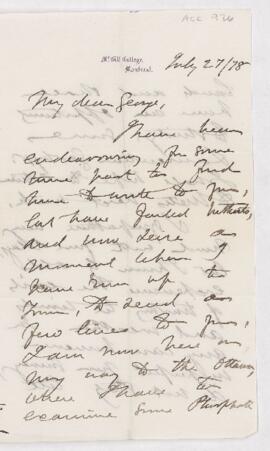 ACC 926
McGill College,
Montreal.
July 27/78
My dear George,
I have been
endeavouring for some
time past to find
time to write to you,
but have failed hitherto,
and now seize a
moment when I
have run up to
town, to send a
few lines to you,
I am now here on
my way to the Ottawa,
where I have to
examine some Phosphate